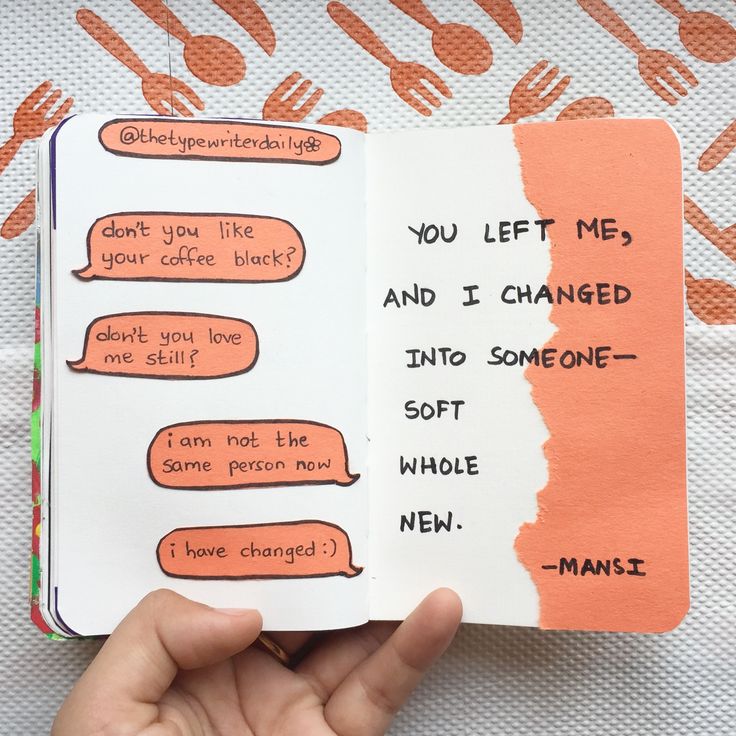 @thetypewriterdaily
don't you like
your coffee black?
don't you love
me still?
i am not the
same person now
i have changed :)
YOU LEFT ME,
AND I CHANGED
INTO SOMEONE—
SOFT
WHOLE
NEW.
—MANSI